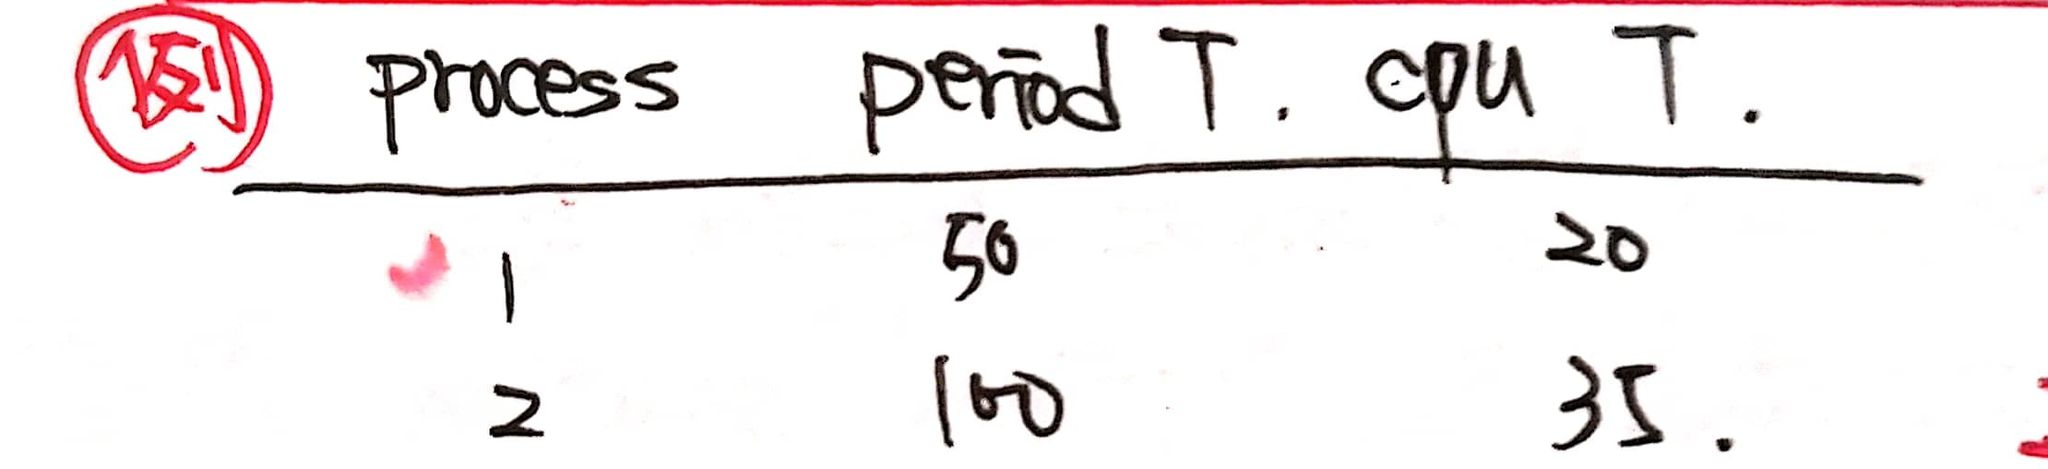 例 process period T. cpu T.
1 50 20
2 100 35.